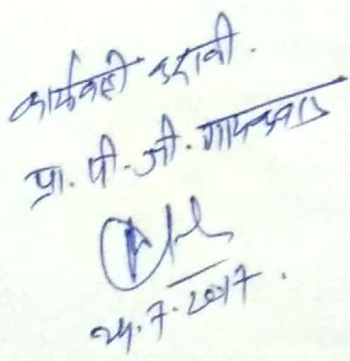 कार्यवाही करावी.
प्रा. पी. जी. गायकवाड
24.7.2017.